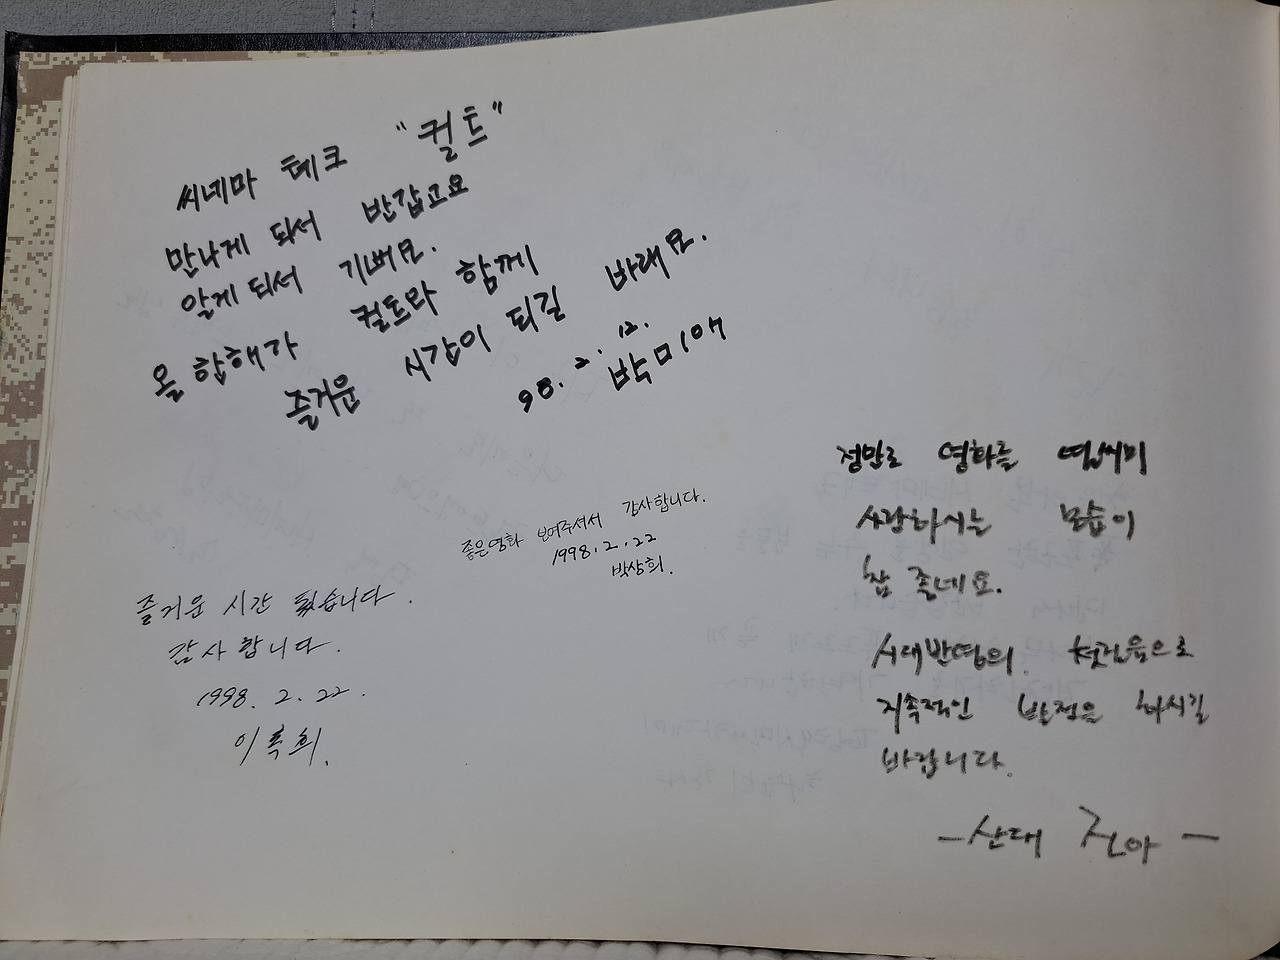 씨네마 테크 "컬트"
만나게 되서 반갑고요
알게 되서 기뻐요.
올 한해가 컬트와 함께
즐거운 시간이 되길 바래요.
98. 2. 12.
박미
좋은영화 보여주셔서 감사합니다.
1998. 2. 22
박상희.
즐거운 시간 됬습니다.
감사합니다.
1998. 2. 22.
이록희.
정말로 영화를 열씨미
사랑하시는 모습이
참 좋네요.
시대반영의 첫걸음으로
지속적인 발전을 하시길
바랍니다.
- 산대 진아 -